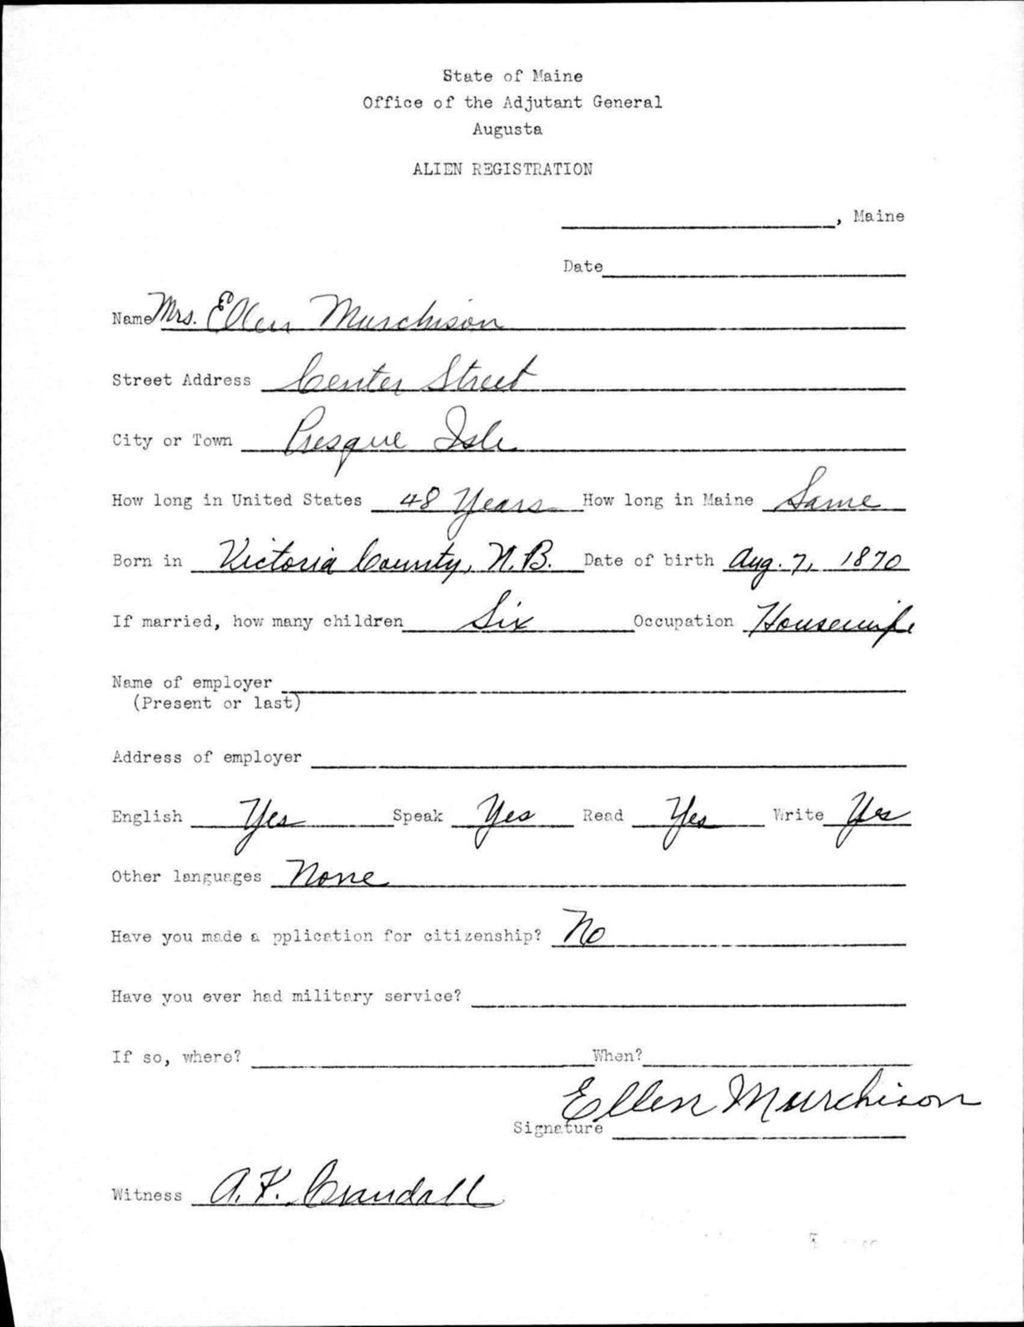 State of Maine
Office of the Adjutant General
Augusta
ALIEN REGISTRATION
, Maine
Date
Name Mrs. Ellen Murchison
Street Address Center Street
City or Town Presque Isle
How long in United States 48 Years How long in Maine Same
Born in Victoria County, N.B. Date of birth Aug. 7, 1870
If married, how many children Six Occupation Housewife
Name of employer
(Present or last)
Address of employer
English Yes Speak Yes Read Yes Write Yes
Other languages None
Have you made a pplication for citizenship? No
Have you ever had military service?
If so, where? When?
Ellen Murchison
Signature
Witness A. F. Crandall